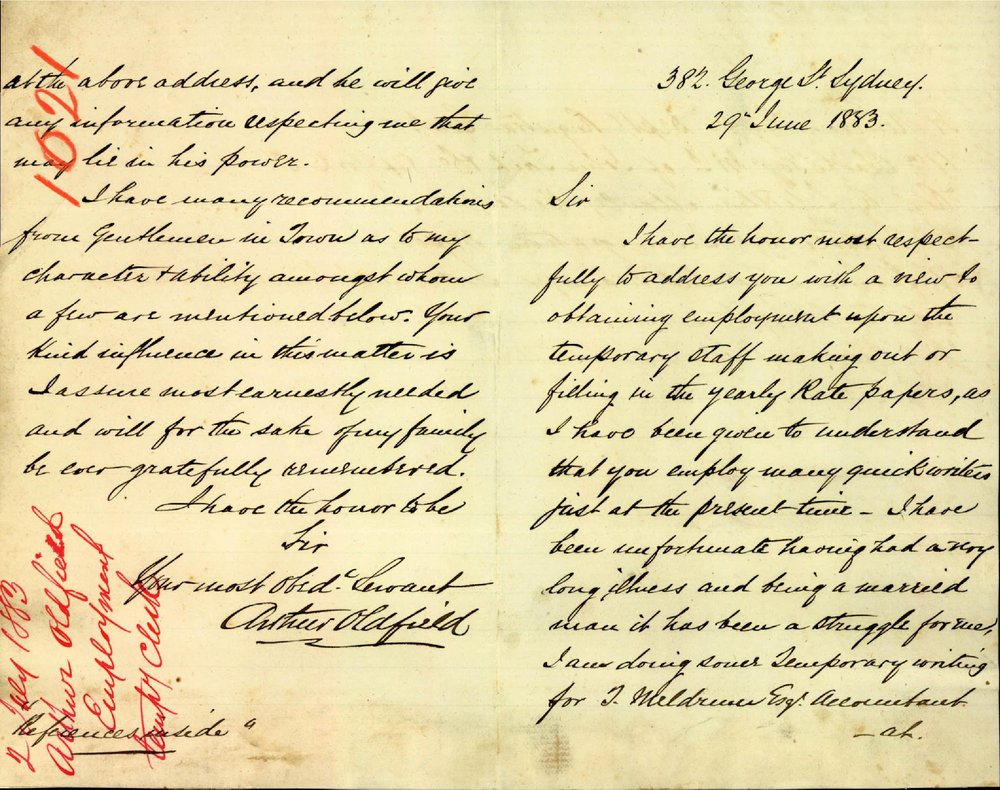 382. George St. Sydney.
29th June 1883.
Sir
I have the honor most respect-
fully to address you with a view to
obtaining employment upon the
temporary staff making out or
filling in the yearly Rate papers, as
I have been given to understand
that you employ many quick writers
just at the present time - I have
been unfortunate having had a very
long illness and being a married
man it has been a struggle for me,
I am doing some Temporary writing
for T. Meldrum Esqr. Accountant
- at.
at the above address, and he will give
any information respecting me that
may lie in his power.
I have many recommendations
from Gentlemen in Town as to my
character & ability amongst whom
a few are mentioned below. Your
kind influence in this matter is
I assure most earnestly needed
and will for the sake of my family
be ever gratefully remembered.
I have the honor to be
Sir
Your most Obedt. Servant
Arthur Oldfield
"References inside"
1021
2 July 1883
Arthur Oldfield
Employment
tempy Clerk